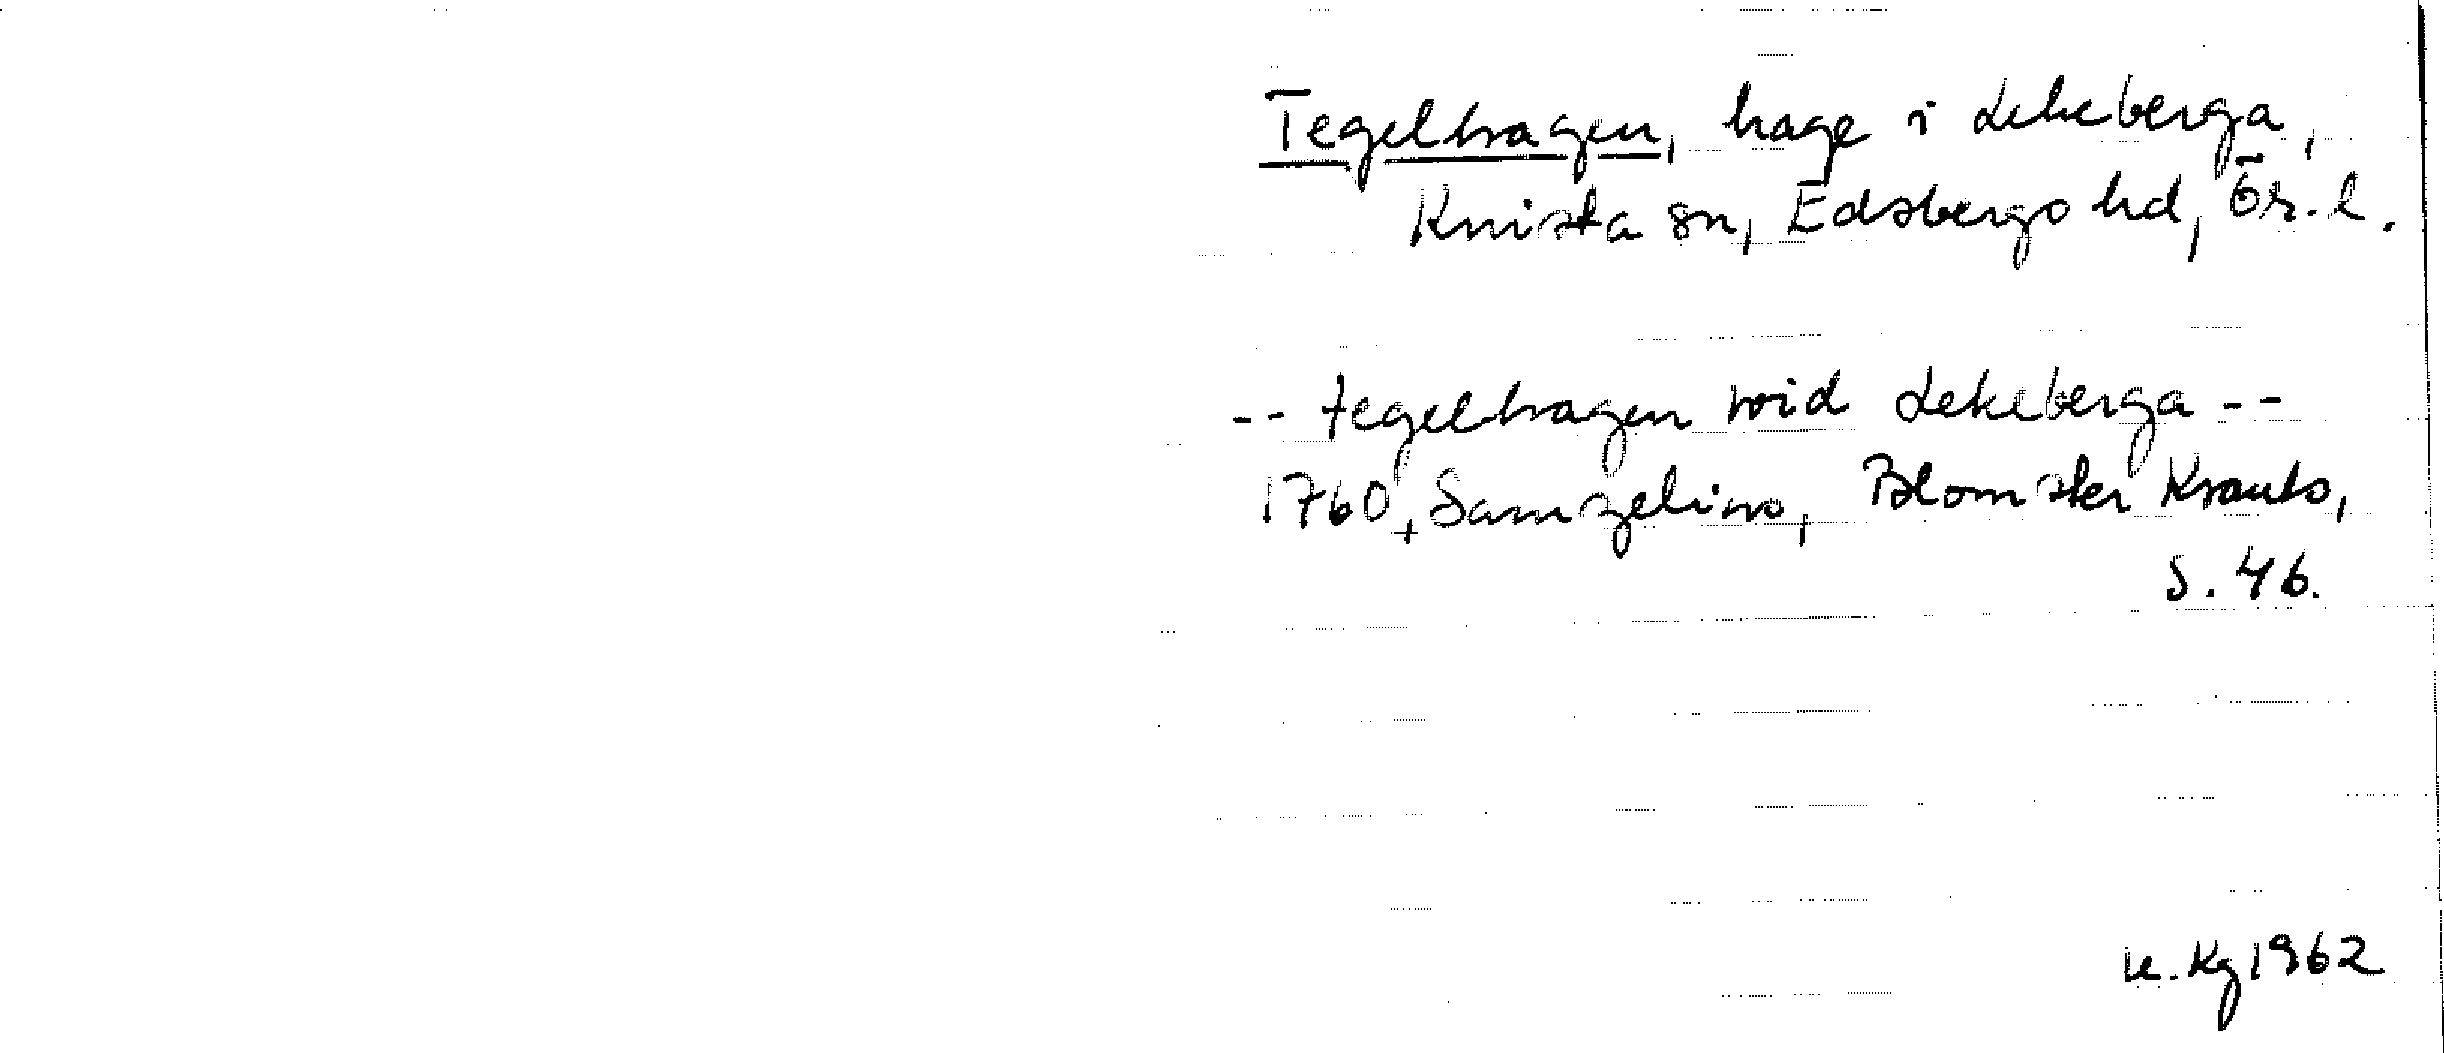 Tegelhagen, hage i Lekeberga,
Knista sn, Edsbergs hd, Ör. l.
-- tegelhagen wid Lekeberga --
1760, Samzelius, Blomster Krants,
S. 46.
K. Kg 1962